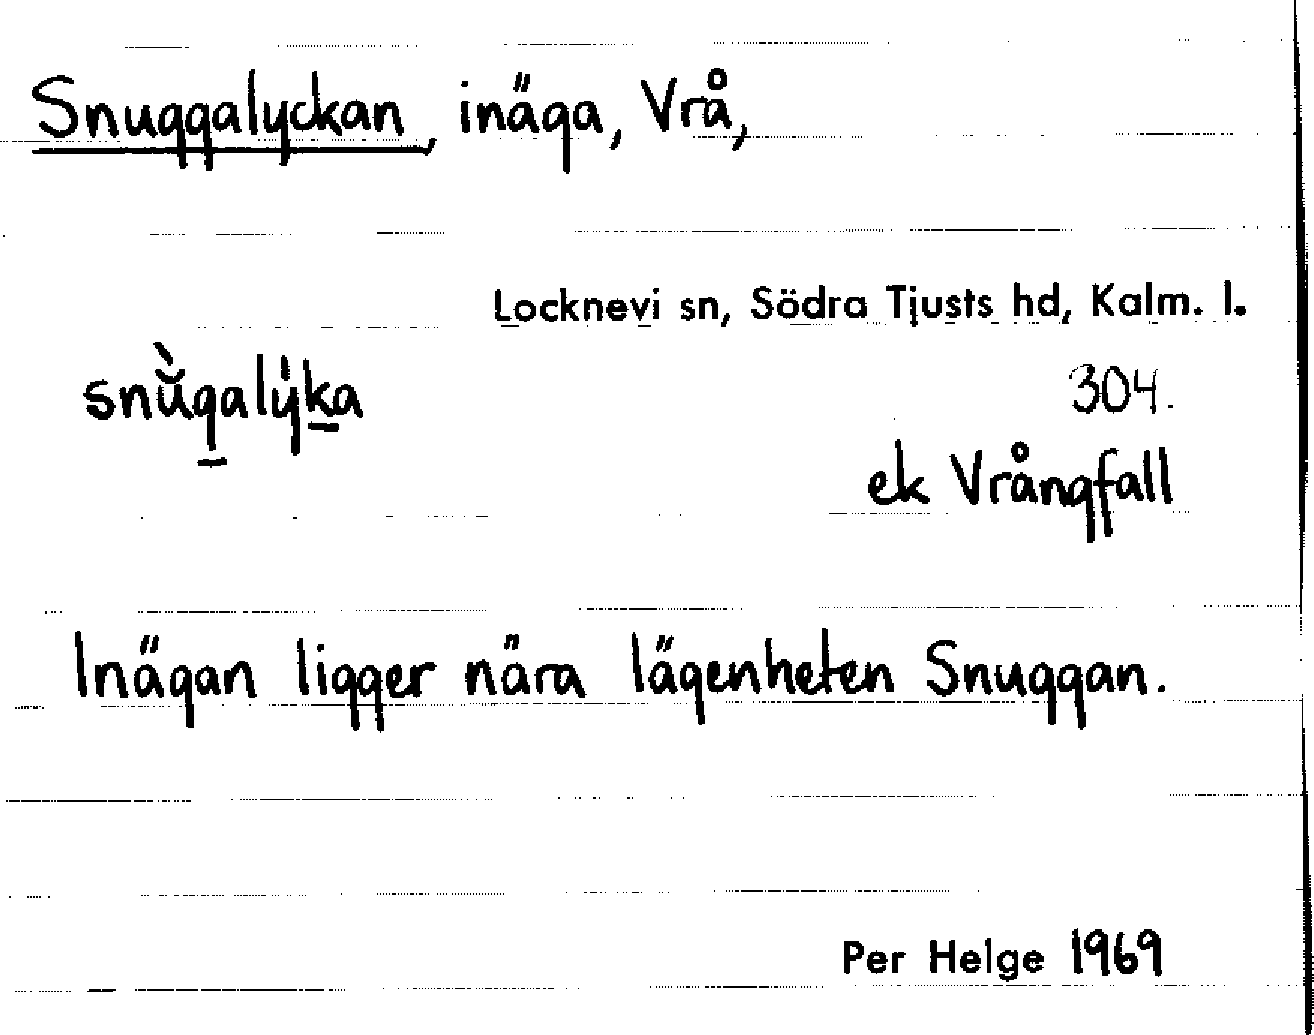 Snuggalyckan, inäga, Vrå,
Locknevi sn, Södra Tjusts hd, Kalm. l.
snùg̲alẏk̲a
304.
ek Vrångfall
Inägan ligger nära lägenheten Snuggan.
Per Helge 1969